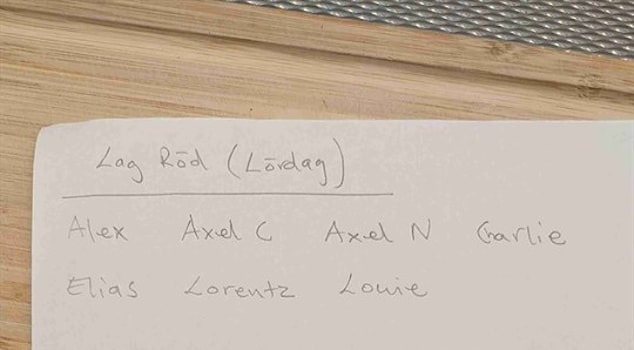 Lag Röd (Lördag)
Alex Axel C Axel N Charlie
Elias Lorentz Louie